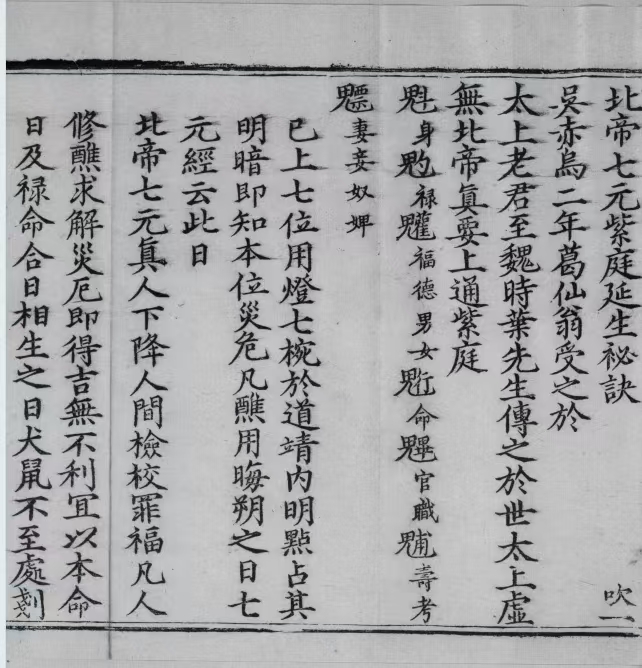 北帝七元紫庭延生祕訣 吹一
吳赤烏二年葛仙翁受之於
太上老君至魏時葉先生傳之於世太上虛
無北帝真要上通紫庭
魁身禄福德男女命魓官職壽考
魒妻妾奴婢
已上七位用燈七椀於道靖內明點占其
明暗即知本位災危凡醮用晦朔之日七
元經云此日
北帝七元真人下降人間檢校罪福凡人
修醮求解災厄即得吉無不利冝以本命
日及禄命合日相生之日犬鼠不至處剗